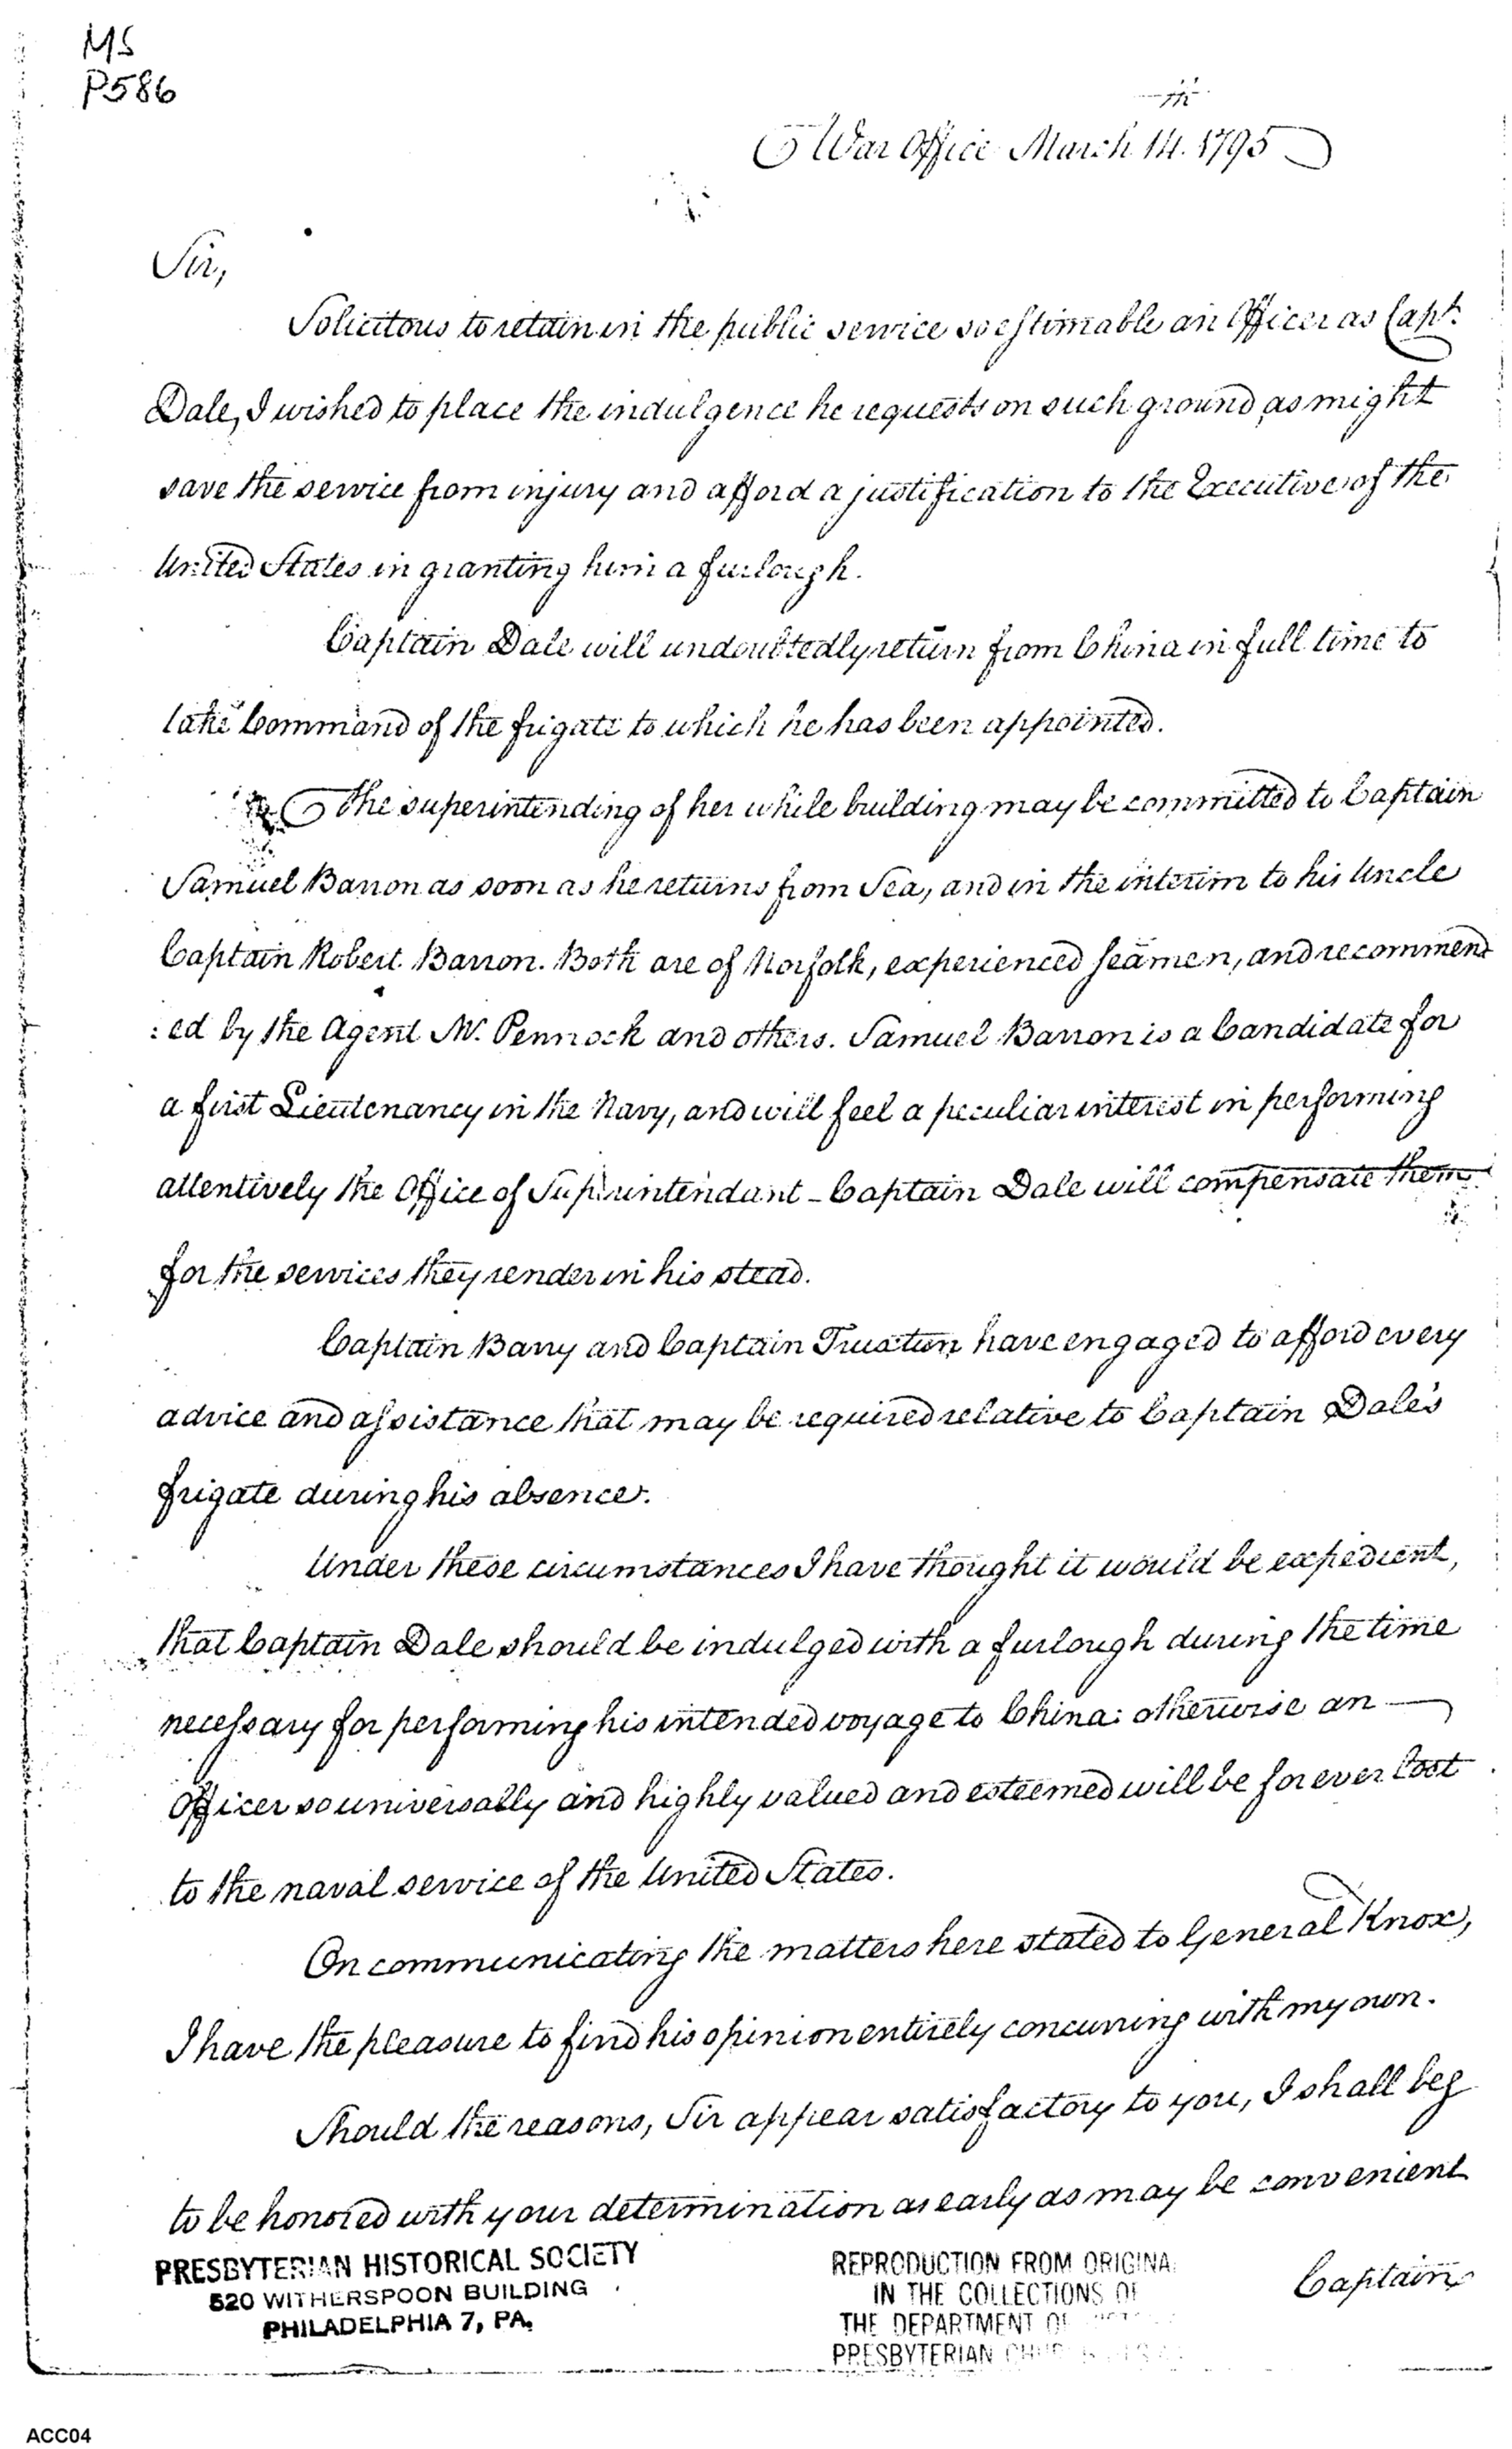 MS
P586
War Office March 14. 1795
Sir,
Solicitous to retain in the public service so estimable an Officer as Capt.
Dale, I wished to place the indulgence he requests on such ground as might
save the service from injury and afford a justification to the Executive of the
United States in granting him a furlough.
Captain Dale will undoubtedly return from China in full time to
take Command of the frigate to which he has been appointed.
The superintending of her while building may be committed to Captain
Samuel Barron as soon as he returns from Sea, and in the interim to his Uncle
Captain Robert Barron. Both are of Norfolk, experienced seamen, and recommend
:ed by the Agent Mr. Pennock and others. Samuel Barron is a Candidate for
a first Lieutenancy in the Navy, and will feel a peculiar interest in performing
attentively the Office of Superintendant - Captain Dale will compensate them
for the services they render in his stead.
Captain Barry and Captain Truxtun have engaged to afford every
advice and assistance that may be required relative to Captain Dale's
frigate during his absence.
Under these circumstances I have thought it would be expedient,
that Captain Dale should be indulged with a furlough during the time
necessary for performing his intended voyage to China: otherwise an
Officer so universally and highly valued and esteemed will be forever lost
to the naval service of the United States.
On communicating the matters here stated to General Knox,
I have the pleasure to find his opinion entirely concurring with my own.
Should the reasons, Sir appear satisfactory to you, I shall beg
to be honored with your determination as early as may be convenient
Captain
PRESBYTERIAN HISTORICAL SOCIETY
520 WITHERSPOON BUILDING
PHILADELPHIA 7, PA.
REPRODUCTION FROM ORIGINA
IN THE COLLECTIONS OF
THE DEPARTMENT OF
PRESBYTERIAN
ACC04